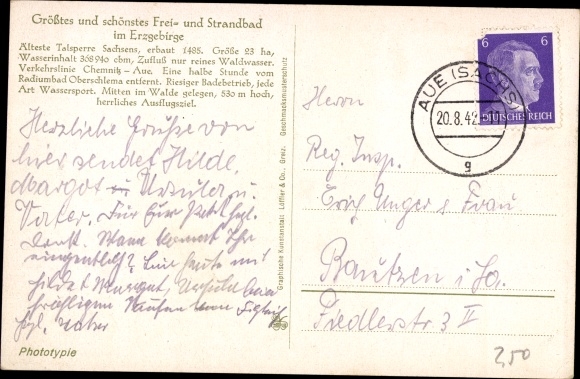 Größtes und schönstes Frei- und Strandbad
im Erzgebirge
Älteste Talsperre Sachsens, erbaut 1485. Größe 23 ha,
Wasserinhalt 368940 cbm, Zufluß nur reines Waldwasser.
Verkehrslinie Chemnitz – Aue. Eine halbe Stunde vom
Radiumbad Oberschlema entfernt. Riesiger Badebetrieb, jede
Art Wassersport. Mitten im Walde gelegen, 530 m hoch,
herrliches Ausflugsziel.
Herzliche Grüße von
hier sendet Hilde,
Margot u Ursula u.
Vater. Für Eure
Dank. Wann kommt Ihr
eigentlich? heute
Margot, Ursula
Vater
Phototypie
Graphische Kunstanstalt Löffler & Co., Greiz. Geschmacksmusterschutz
AUE (SACHS)
20.8.42
g
6 6
DEUTSCHES REICH
Herrn
Reg. Insp.
Erich Unger & Frau
Bautzen i. Sa.
Fiedlerstr 3 II
250